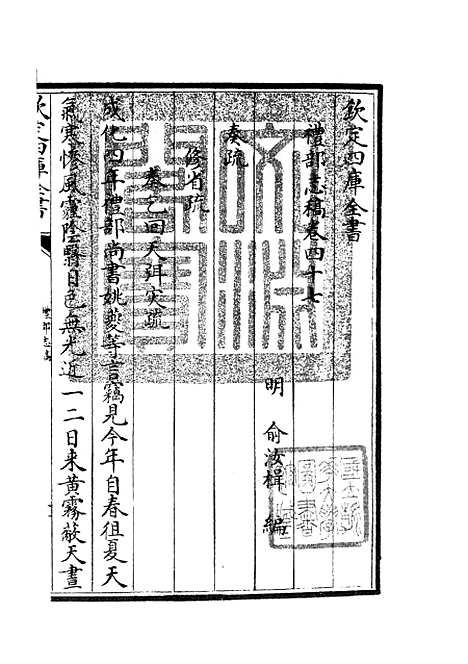 欽定四庫全書
禮部志稿卷四十七
明 俞汝楫 編
奏疏
修省疏
奏乞回天弭災疏
成化四年禮部尚書姚夔等言竊見今年自春徂夏天
氣寒慘風霾陰翳日色無光近一二日來黃霧蔽天晝
欽定四庫全書
禮部志稿